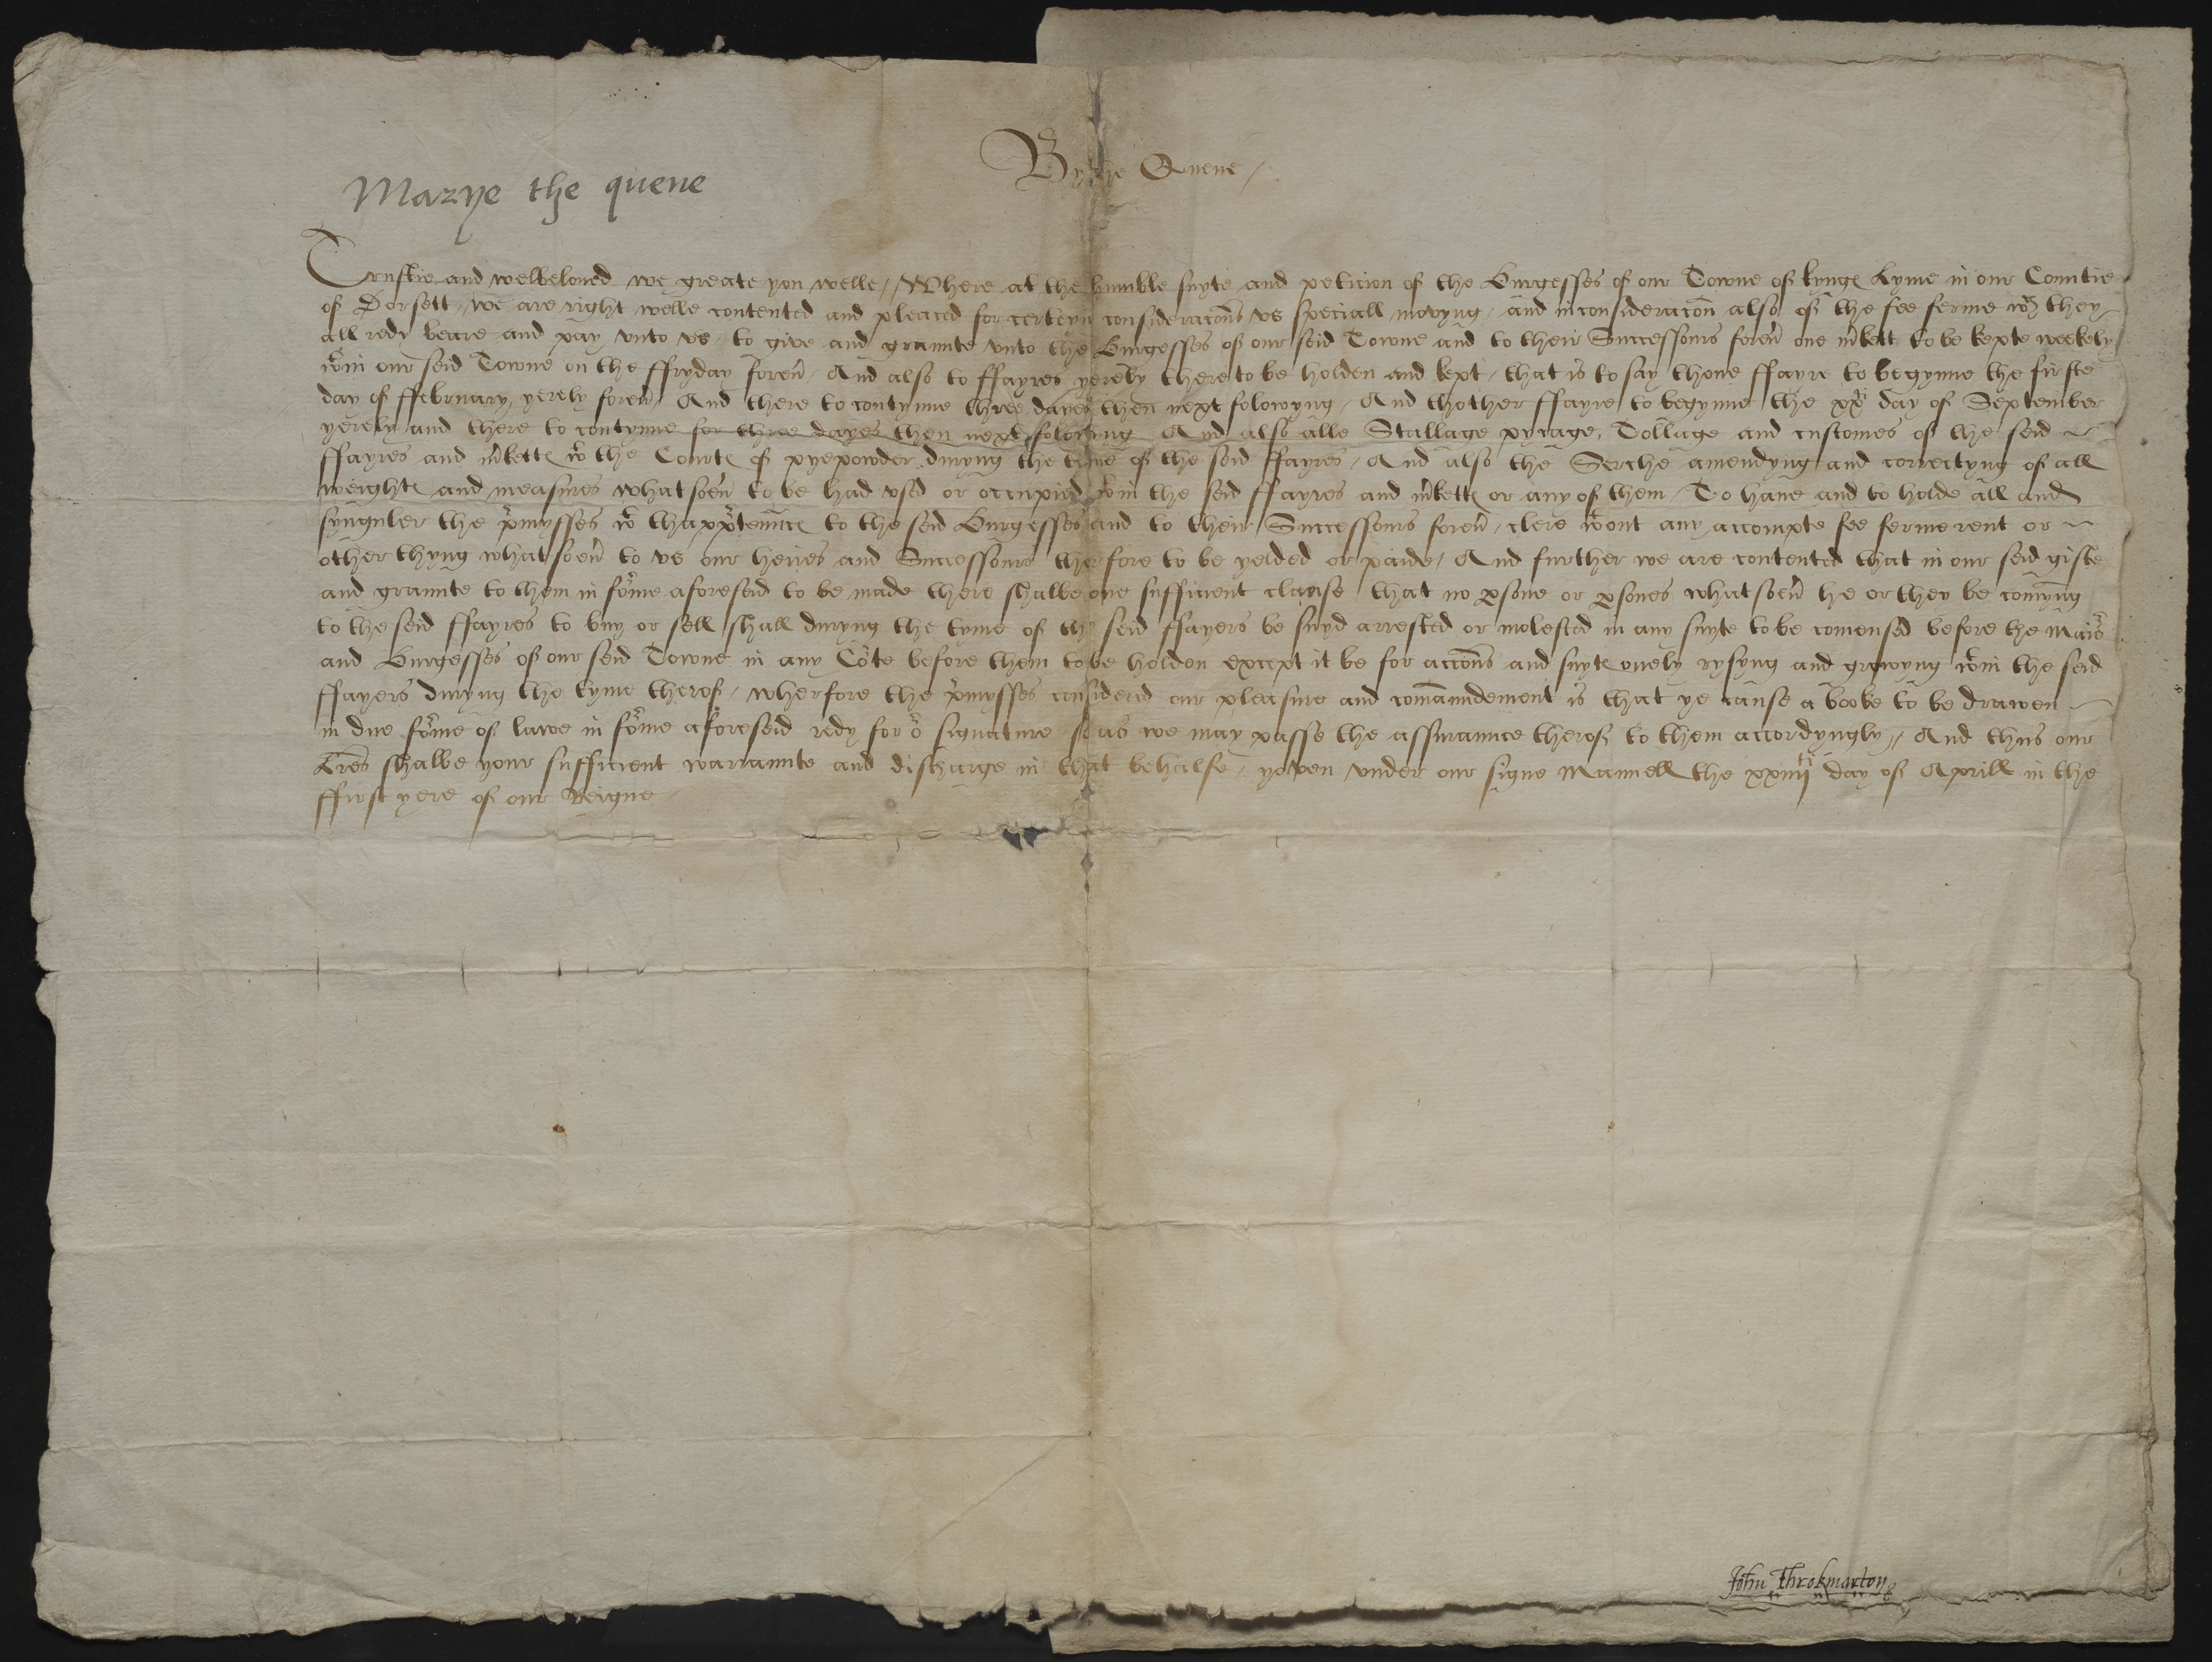 By the Quene /
Marye the quene
Trustie and welbeloved we greate you welle / Where at the humble suyte and peticion of the Burgesses of our Towne of kyngꝭ Lyme in our Countie
of Dorsett / we are right welle contented and pleaced for certeyn consideracōns us speciall movyng / and in consideracōn also of the fee ferme wch they
all redy beare and pay unto us / to give and graunte unto the Burgesses of our seid Towne and to their Successours forev̄ one m̄kett to be kepte weekely
wtin our seid Towne on the ffryday forev̄ / And also to ffayres yerely there to be holden and kept / that is to say thone ffayre to begynne the firste
day of ffebruary yerely forev̄ / And there to contynue three dayes then next folowyng / And thother ffayre to begynne the xxti day of September
yerely and there to contynue for three dayes then next folowyng And also alle Stallage pycage, Tollage and customes of the seid
ffayres and m̄kettꝭ wt the Courtꝭ of pyepowder duryng the tyme of the seid ffayres / And also the Serche amendyng and correctyng of all
weightꝭ and measures whatsoev̄ to be had used or occupied wtin the seid ffayres and m̄kettꝭ or any of them / To have and to holde all and
synguler the p̄mysses wt thapp̄tenncꝭ to the seid Burgesses and to their Successours forev̄ / clere wtout any accompte fee ferme rent or
other thyng whatsoev̄ to us our heires and Successours therfore to be yelded or paide / And further we are contented that in our seid gifte
and graunte to them in fōrme aforeseid to be made there shalbe one sufficient clause that no ꝑsone or ꝑsones whatsoev̄ he or they be comyng
to the seid ffayres to buy or sell shall duryng the tyme of the seid ffayers be suyd arrested or molested in any suyte to be comensed before the Maior
and Burgesses of our seid Towne in any Cōte before them to be holden except it be for accōns and suytꝭ onely rysyng and growyng wtin the seid
ffayers duryng the tyme therof / wherfore the p̄mysses considerid our pleasure and comaundement is that ye cause a booke to be drawen
in due fōrme of lawe in fōrme aforeseid redy for or signature so as we may passe the assuraunce therof to them accordyngly // And thus our
l̄res shalbe your sufficient warraunte and discharge in that behalfe / yoven under our signe Manuell the xxiiijti day of Aprill in the
ffirst yere of our Reigne
John Throkmarton